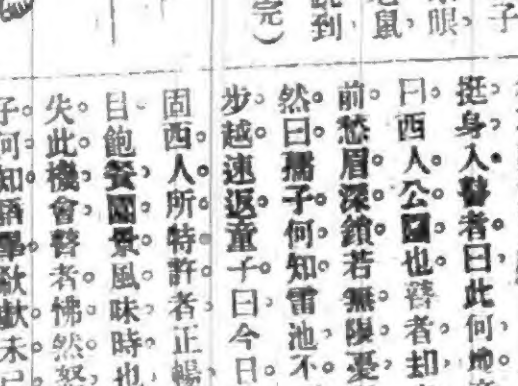 子
眼，
鼠，
到，
完）
挺身入瞽者曰此何地
曰西人公園也瞽者却
前愁眉深鎖若無限憂
然曰孺子何知雷池不
步越速返童子曰今日
固西人所特許者正暢
目飽餐園景風味時也
失此機會瞽者怫然怒
子何知語畢欷歔未已